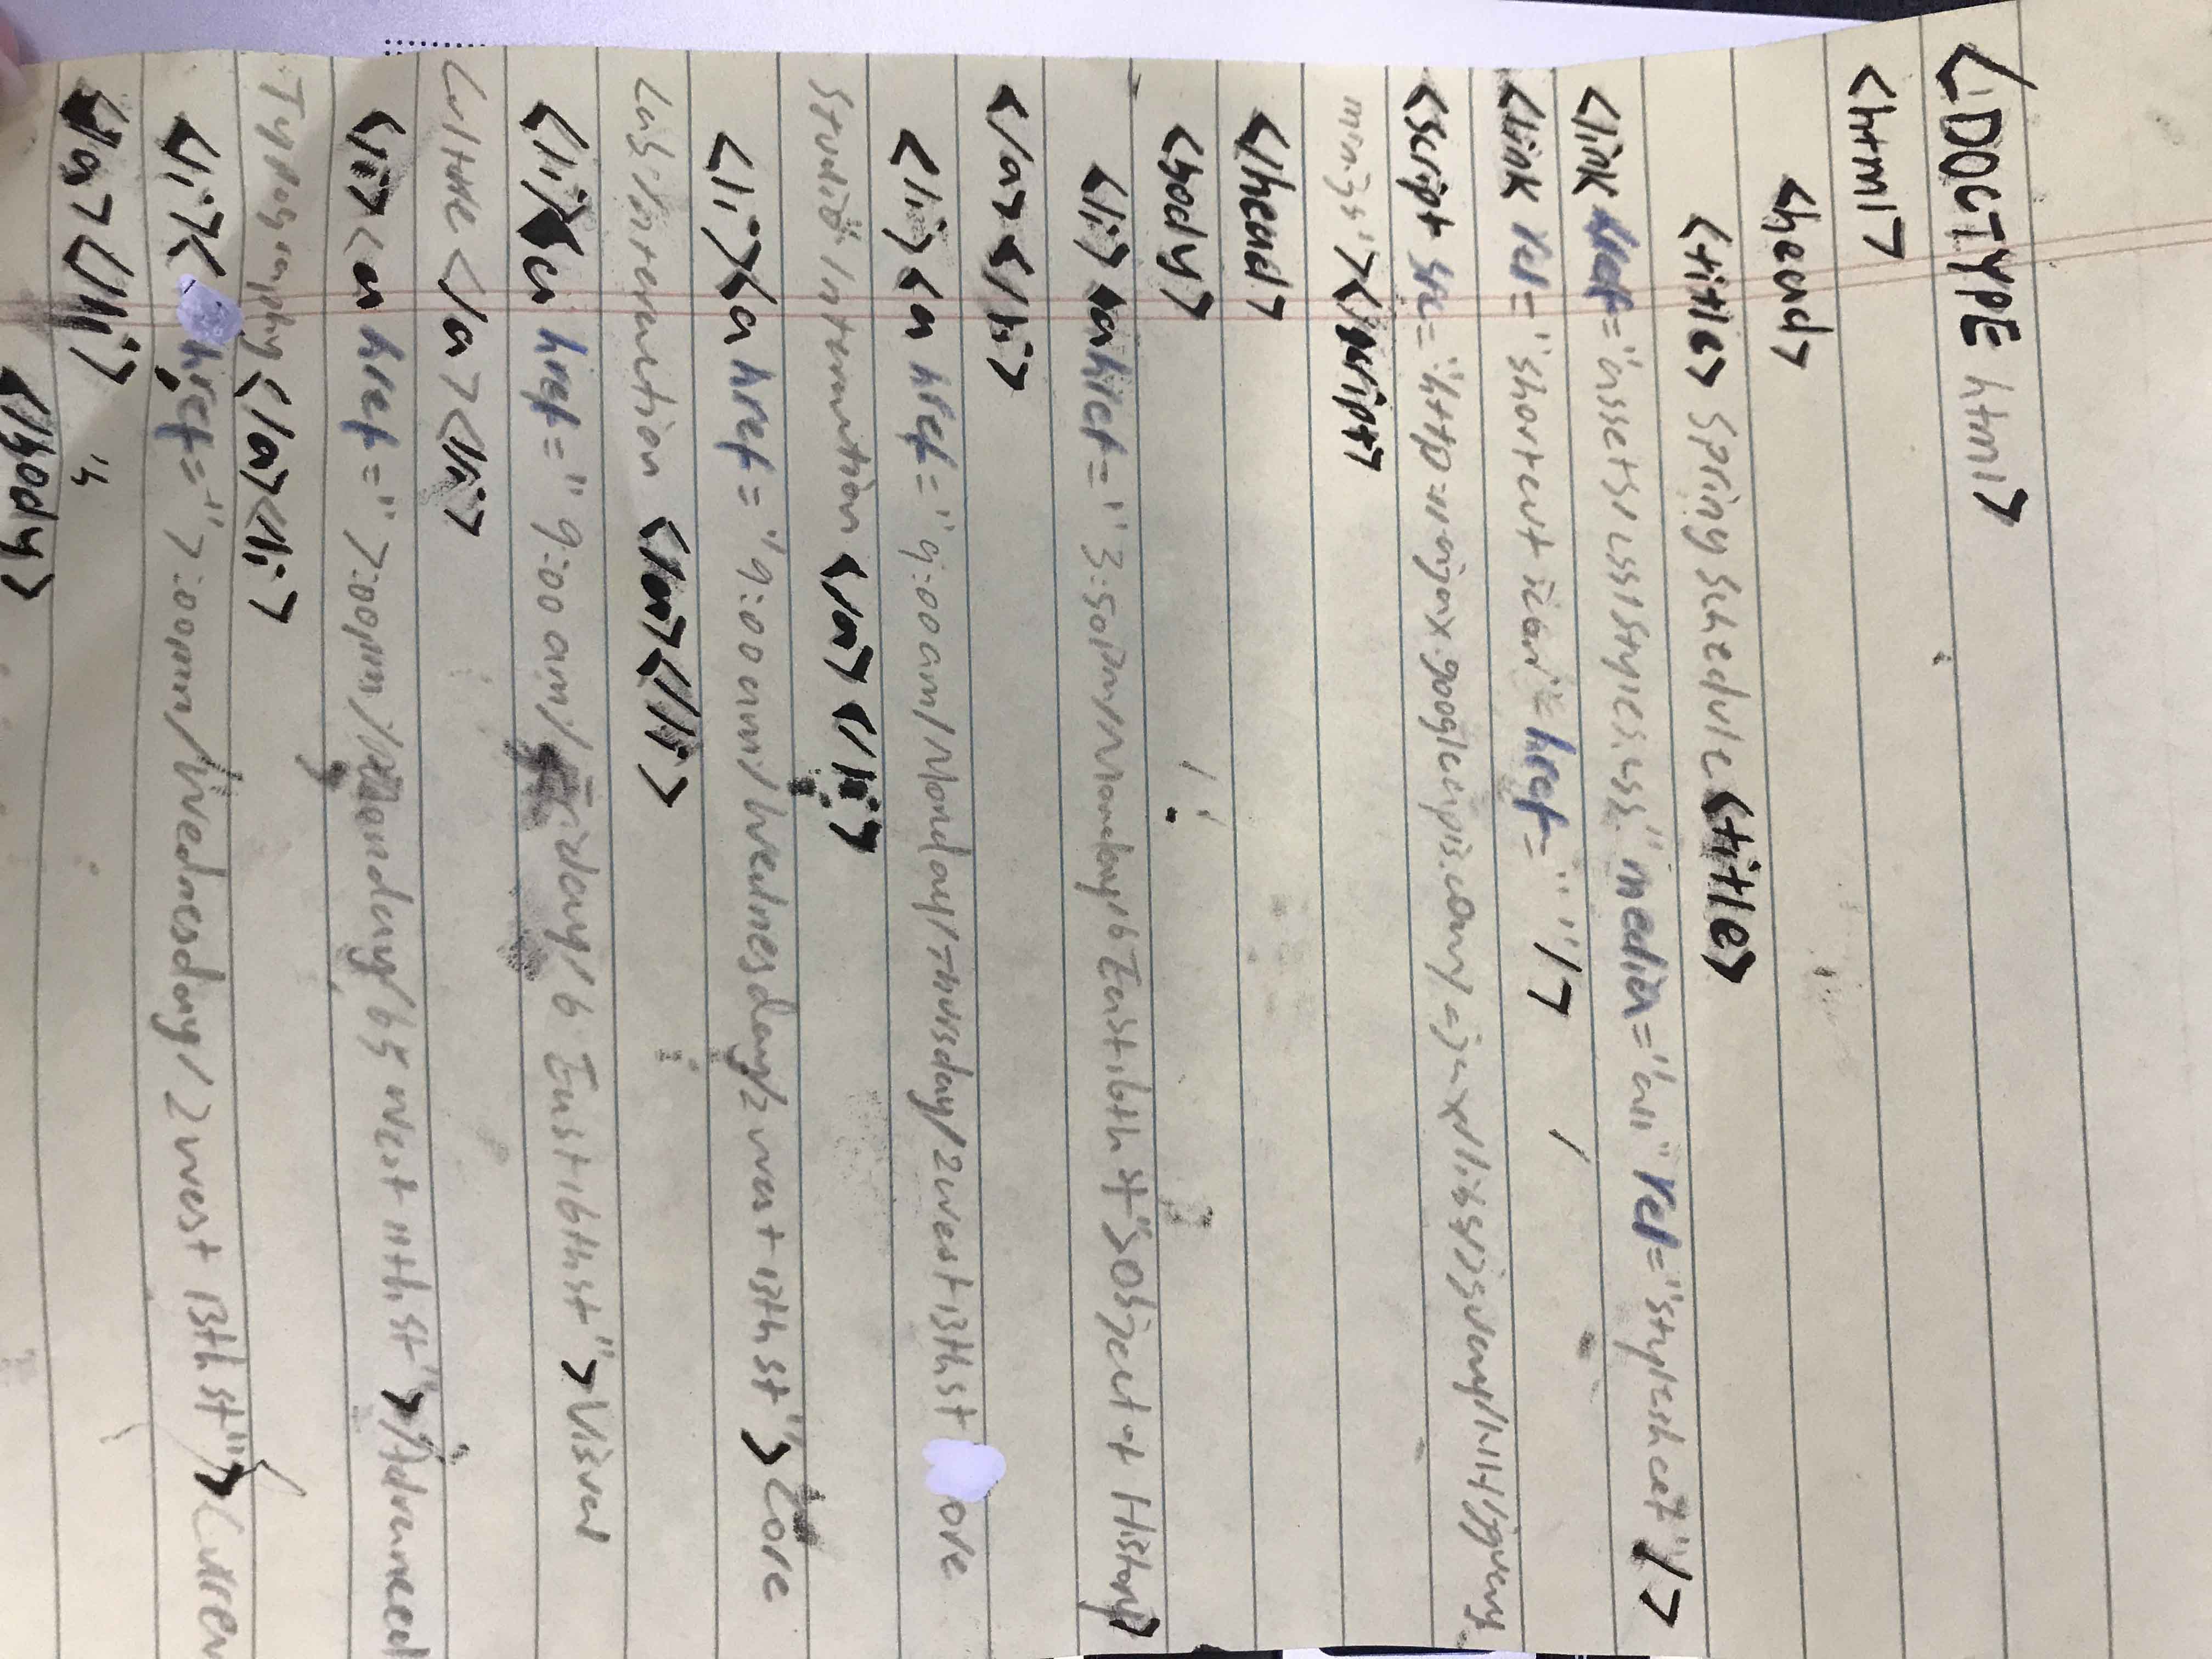 <!DOCTYPE html>
<html>
<head>
<title> Spring Schedule <title>
<link href="assets/css/styles.css" media="all" rel="stylesheet" />
<link rel="shortcut icon" href="" />
<script src="http://ajax.googleapis.com/ajax/libs/jquery/1.11.1/jquery
min.js"></script>
</head>
<body>
<li><a href="3:50pm/Monday/6 East 16th st">Object + History
</a></li>
<li><a href="9:00am/Monday/Thursday/2 west 13th st ore
Studio Interaction </a></li>
<li><a href="9:00am/Wednesday/2 west 13th st">Core
Lab: Interaction </a></li>
<li><a href="9:00am/Friday/6 East 16th st">Visual
Culture </a></li>
<li><a href="7:00pm/Monday/65 west 11th st">Advanced
Typography</a></li>
<li>< href="7:00pm/Wednesday/2 west 13th st">Curren
</a></li>
</body>